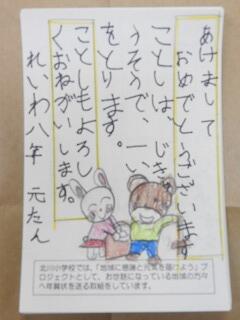 あけまして
おめでとうございます
ことしは、じきゅ
うそうで、一い
をとります。
ことしもよろし
くおねがいします。
れいわ八年 元たん
北川小学校では、「地域に感謝と元気を届けよう」プ
ロジェクトとして、お世話になっている地域の方々
へ年賀状を送る取組をしています。